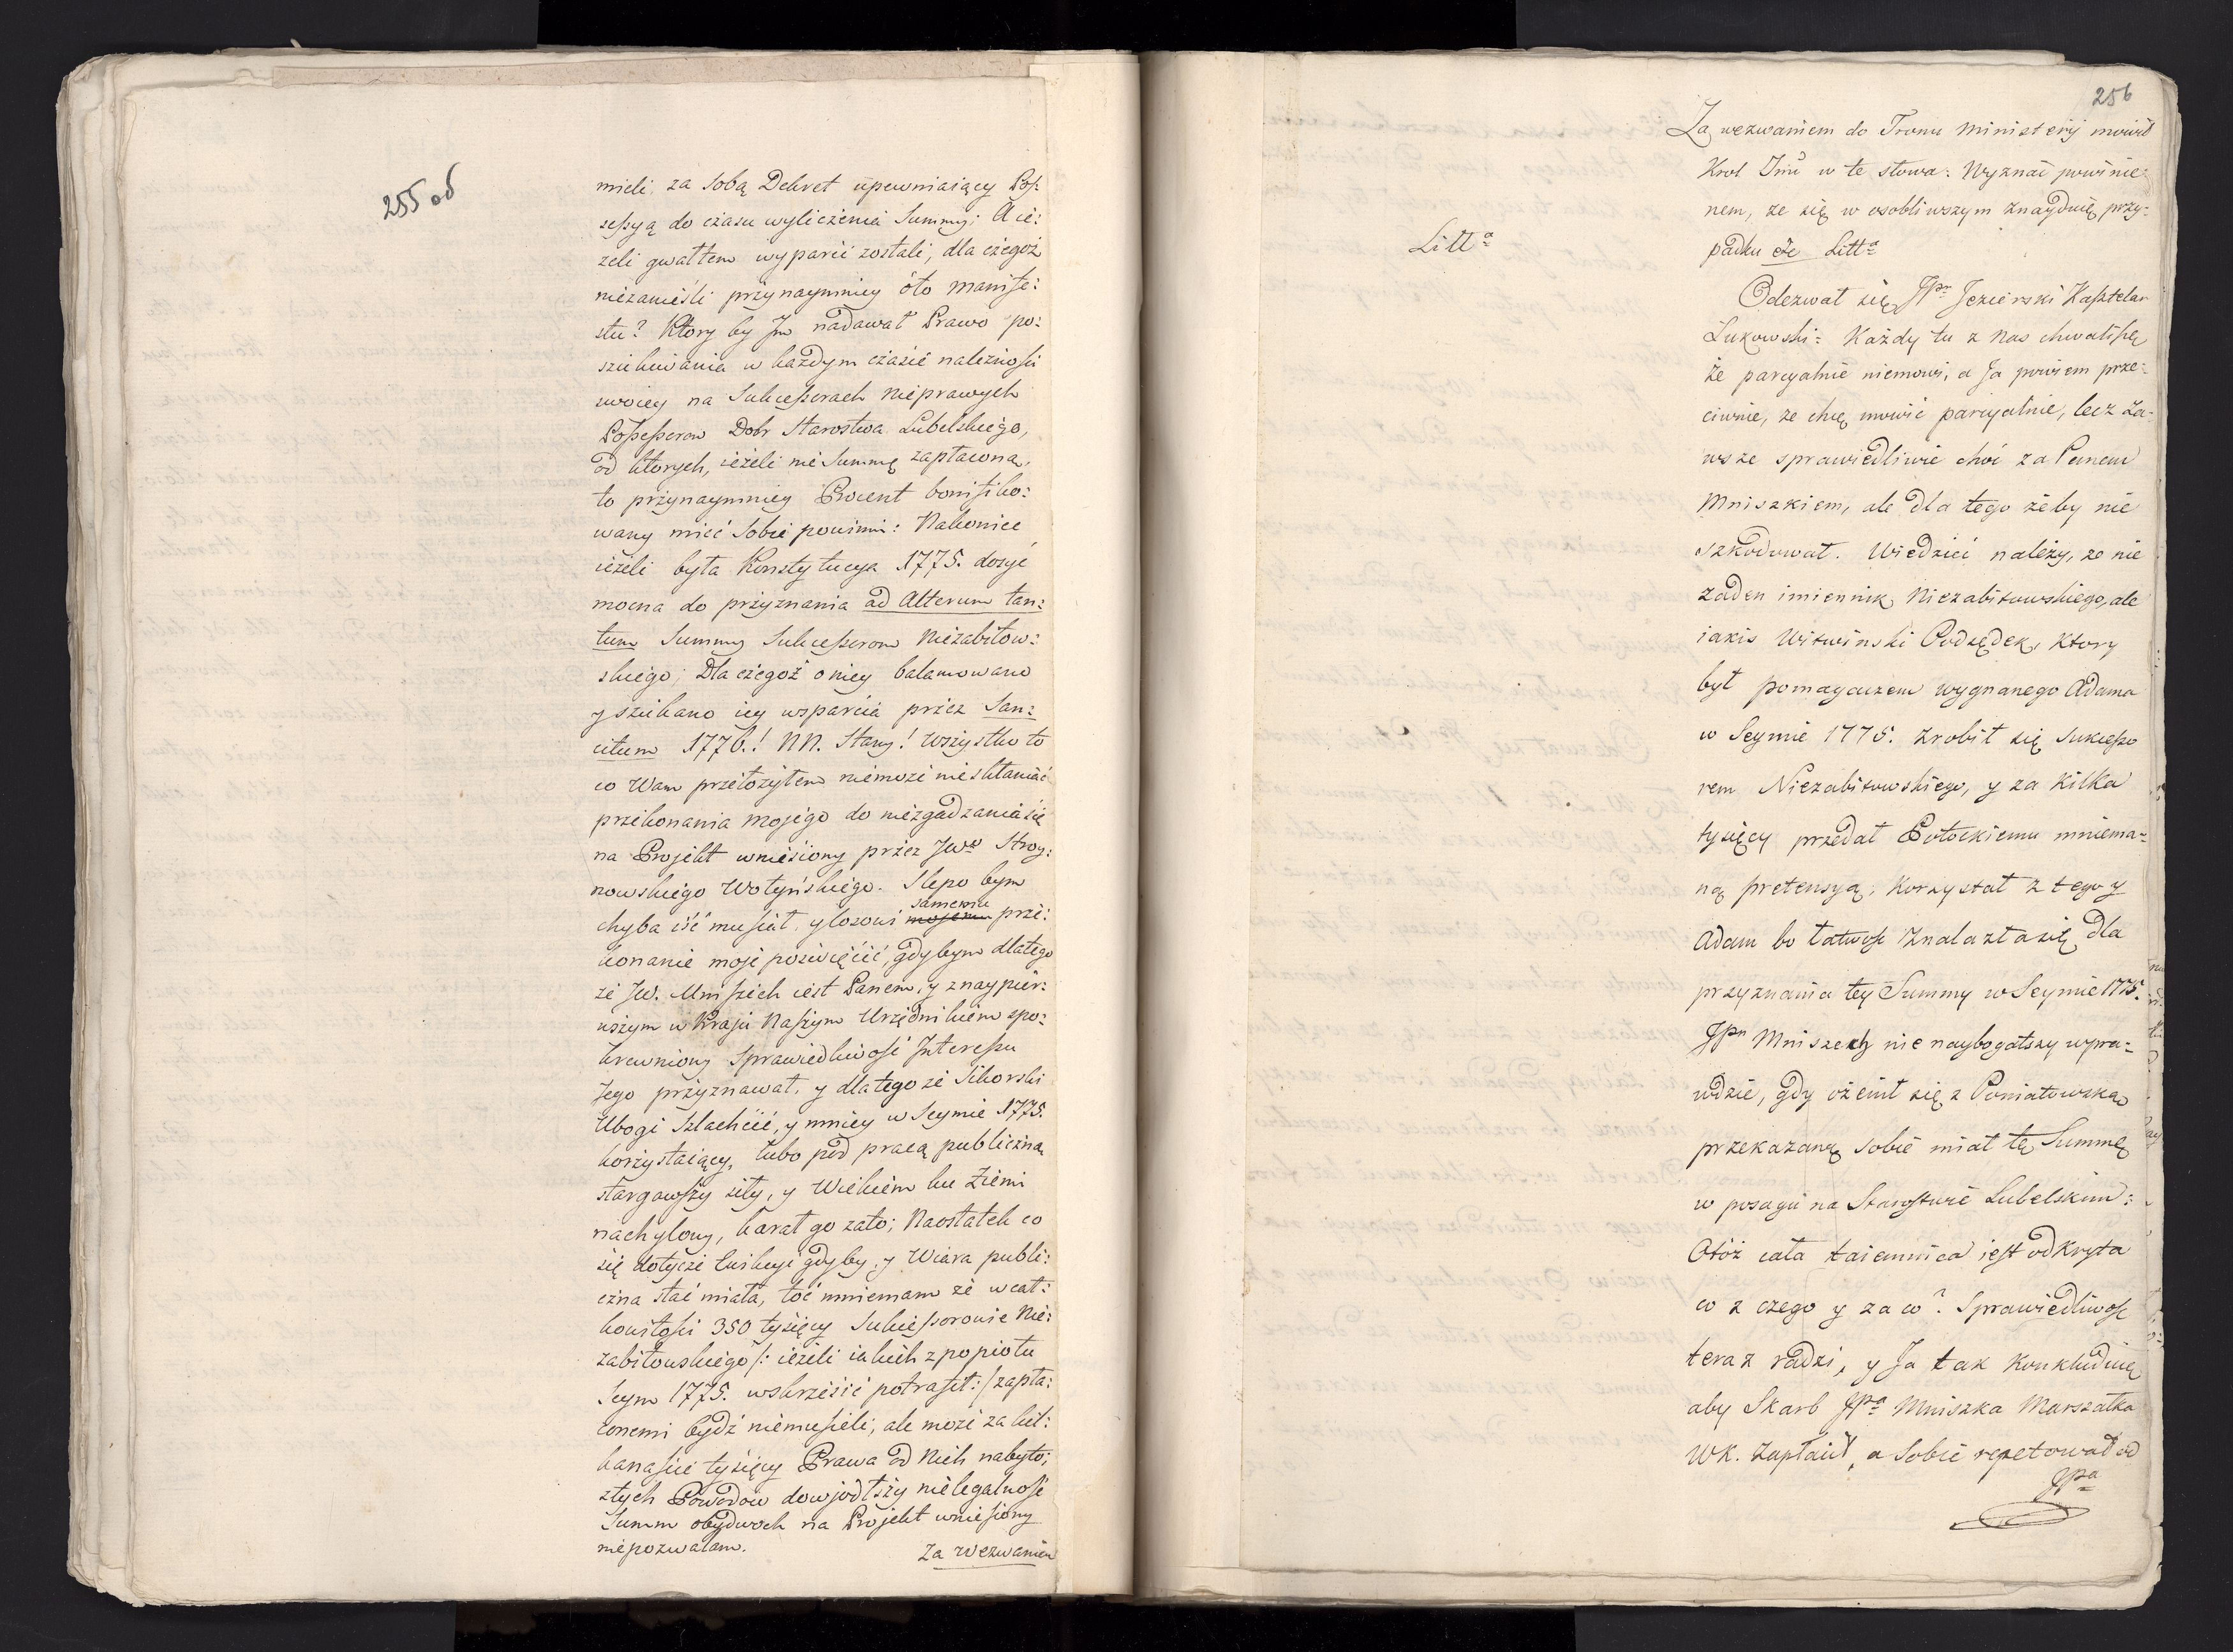 255 od
mieli za sobą Dekret upewniaiący Pos:
sessyą do czasu wyliczenia Summy; A ie:
żeli gwałtem wyparci zostali, dla czegoż
niezanieśli przynaymniey oto manife:
stu? Ktory by Im nadawał Prawo po:
szukiwania w każdym czasie należności
swoiey na Sukcessorach nieprawych
Possessorow Dobr Starostwa Lubelskiego,
od ktorych, ieżeli nie Summę zapłaconą,
to przynaymniey Procent bonifiko:
wany mieć sobie powinni: Nakoniec
ieżeli była Konstytucya 1775. dosyć
mocna do przyznania ad Alterum tan:
tum Summy Sukcessorom Niezabitow:
skiego; Dla czegoż o niey bałamowano
y szukano iey wsparcia przez San:
citum 1776.! NN. Stany! wszystko to
co Wam przełożyłem niemoże nieskłaniać
przekonania mojego do niezgadzania się
na Projekt wniesiony przez JWo Stroy:
nowskiego Wołyńskiego. Slepo bym
chyba iść musiał, y losowi mojemu samemu prze:
konanie moje poświęcić, gdybym dlatego
że JW. Mniszech iest Panem, y znaypier:
wszym w Kraju Naszym Urzędnikiem spo:
krewniony Sprawiedliwość Interessu
Jego przyznawał, y dlatego że Sikorski
Ubogi Szlachcic, y mniey w Seymie 1775.
korzystaiący, lubo pod pracą publiczną
stargawszy siły, y Wiekiem ku Ziemi
nachylony, karał go zato; Naostatek co
się dotycze ewikcyi gdyby y Wiara publi:
czna stać miała, toć mniemam że w cał:
kowitości 350 tysięcy Sukcessorowie Nie:
zabitowskiego /: ieżeli iakich z popiołu
Seym 1775. wskrzesić potrafił :/ zapła:
conemi bydź niemusieli, ale może za kil:
kanaście tysięcy Prawa od Nich nabyto;
z tych Powodow dowiodłszy nielegalność
Summ obydwoch na Projekt wniesiony
niepozwalam.
Za wezwaniem
256
Za wezwaniem do Tronu ministeryj mowił
Krol Jmć w te słowa: Wyznać powinie:
nem, że się w osobliwszym znayduię przy:
padku &c Litta
Litta
Odezwał się JPn Jezierski Kasztelan
Łukowski: Każdy tu z nas chwali się
że parcyalnie niemowi, a Ja powiem prze:
ciwnie, że chcę mowić parcyalnie, lecz za:
wsze sprawiedliwie choć za Panem
Mniszkiem, ale dla tego żeby nie
szkodował. Wiedzieć należy, że nie
żaden imiennik Niezabitowskiego, ale
iakis Witwinski Podsędek, ktory
był pomagaczem wygnanego Adama
w Seymie 1775. zrobił się sukcesso
rem Niezabitowskiego, y za kilka
tysięcy przedał Potockiemu mniema=
ną pretensyą; korzystał z tego y
Adam bo łatwość znalazła się dla
przyznania tey Summy w Seymie 1775.
JPn Mniszech nie naybogatszy wpra=
wdzie, gdy ożenił się z Poniatowską
przekazaną sobie miał tę Summę
w posagu na Starostwie Lubelskim:
Otoż cała taiemnica iest odkryta
co z czego y za co? Sprawiedliwość
teraz radzi, y Ja tak konkluduię
aby Skarb JPa Mniszka Marszałka
WK. zapłacił, a sobie repetował od
JPa